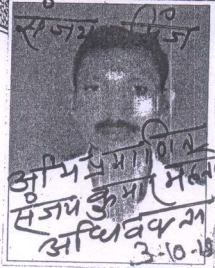 संजय सिंज
अभि प्रमाणित
संजय कुमार
अधिवक्ता
3-10-18